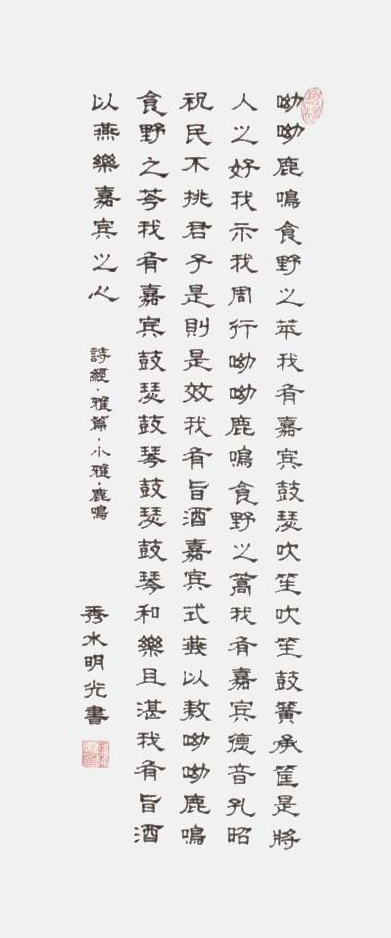 呦呦鹿鳴食野之苹我有嘉宾鼓瑟吹笙吹笙鼓簧承筐是將
人之好我示我周行呦呦鹿鳴食野之蒿我有嘉宾德音孔昭
祝民不挑君子是則是效我有旨酒嘉宾式燕以敖呦呦鹿鳴
食野之芩我有嘉宾鼓瑟鼓琴鼓瑟鼓琴和樂且湛我有旨酒
以燕樂嘉宾之心
詩經·雅篇·小雅·鹿鳴
秀水明光書